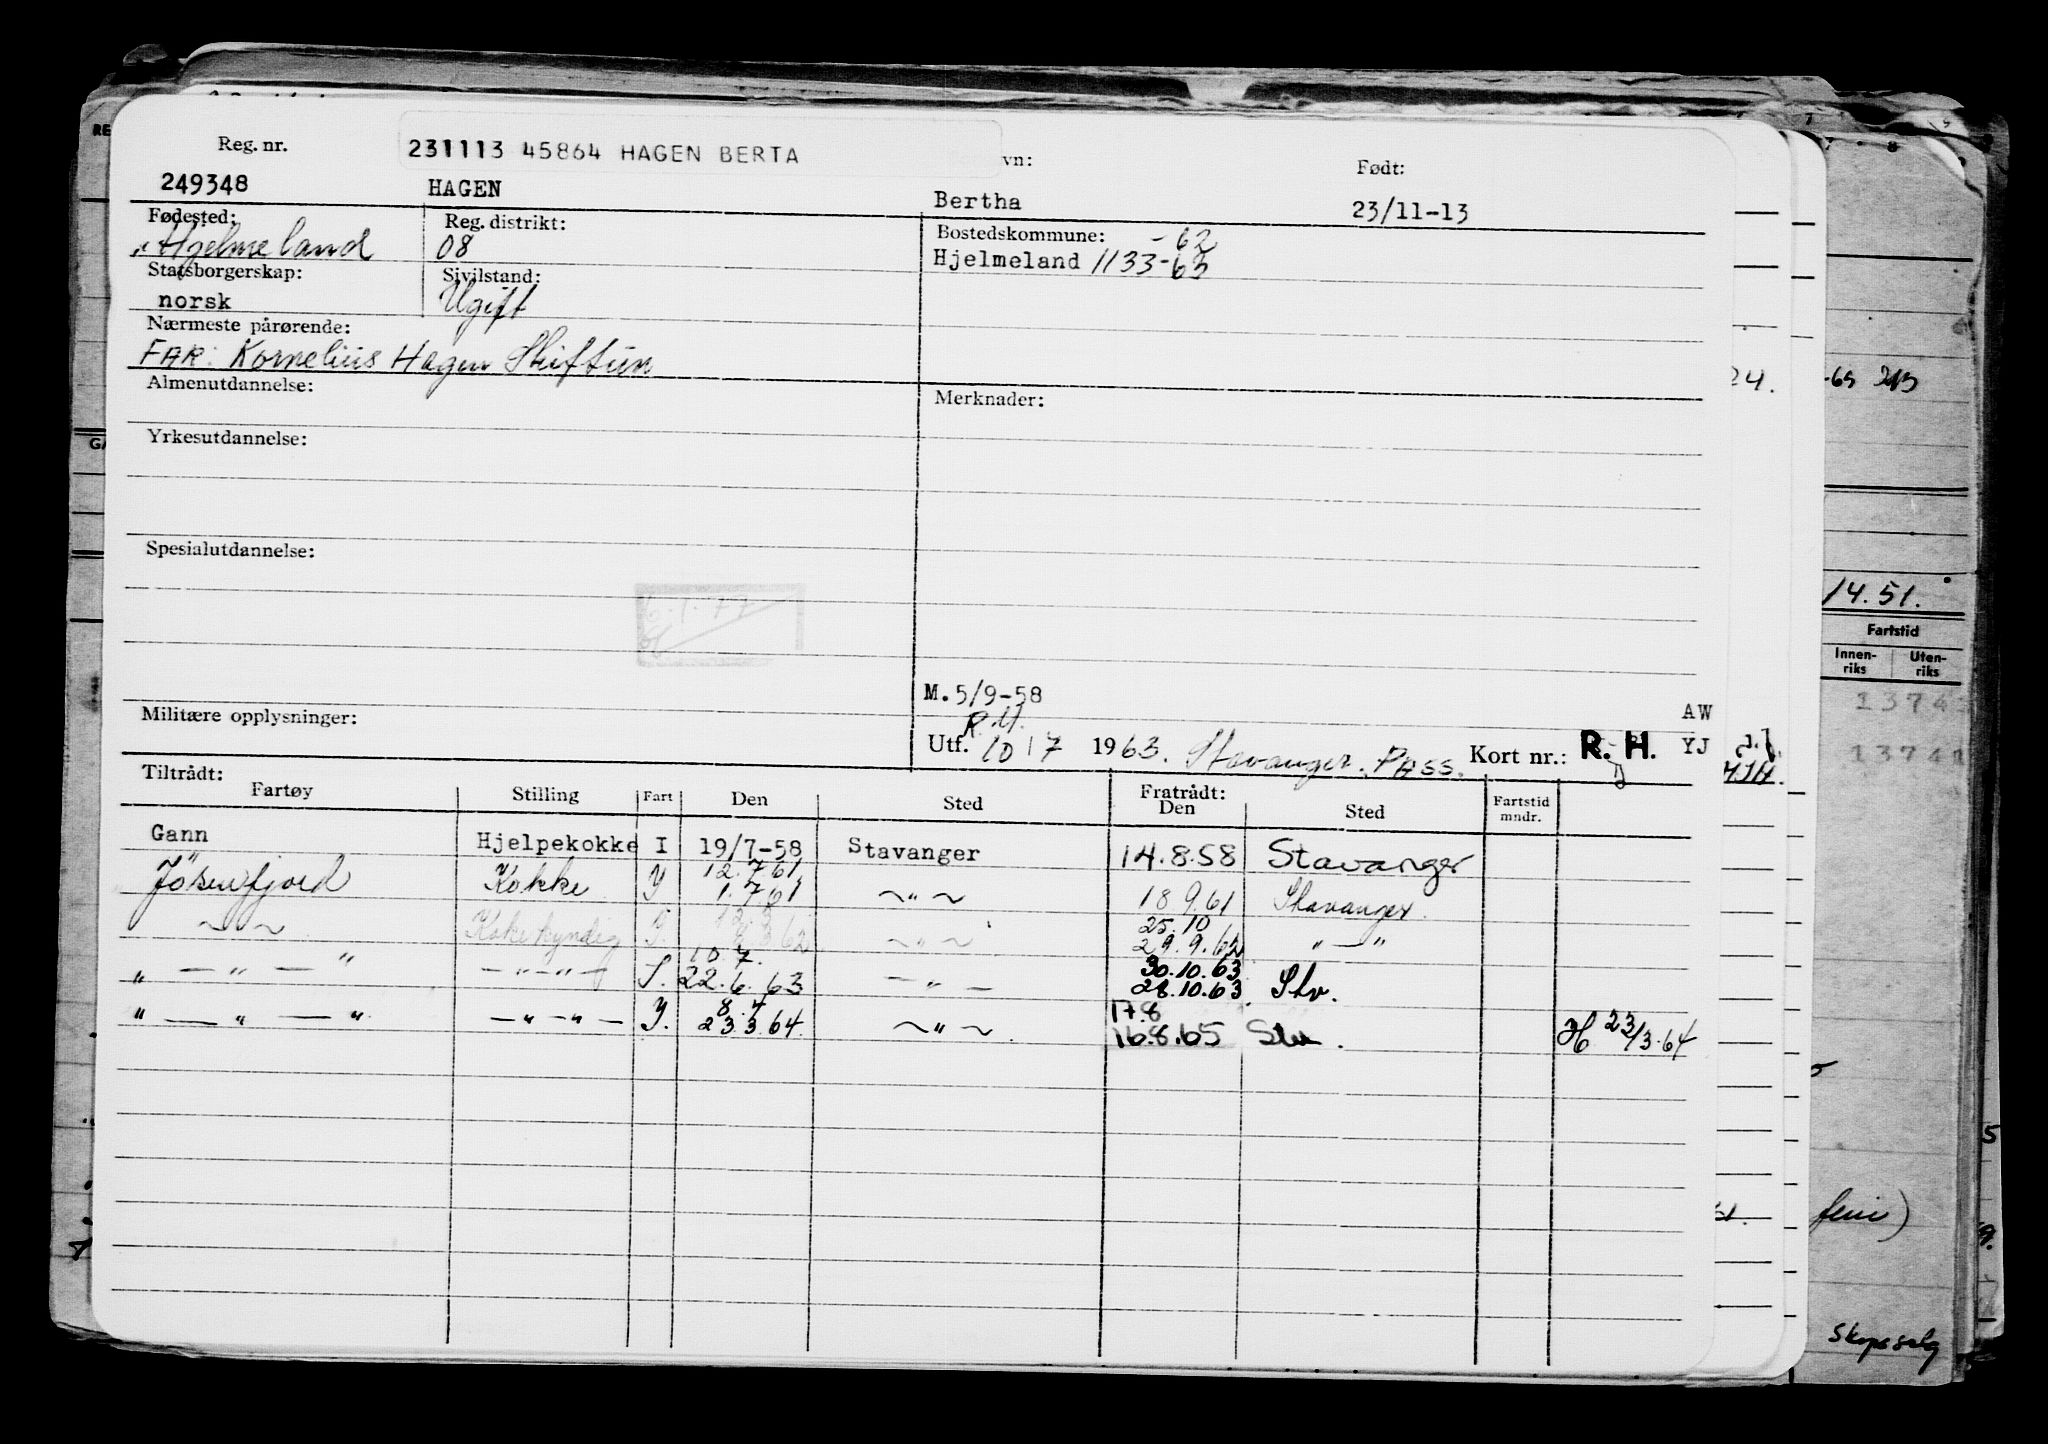 Reg. nr. 231113 45864 HAGEN BERTA vn: Født:
249348 HAGEN Bertha 23/11-13
Fødested: Reg. distrikt: Bostedskommune: -62
Hjelmeland 08 Hjelmeland 1133-63
Statsborgerskap: Sivilstand:
norsk Ugift
Nærmeste pårørende:
FAR: Kornelius Hagen Skiftun
Almenutdannelse: Merknader:
Yrkesutdannelse:
Spesialutdannelse:
6.1.77
M.5/9-58
R.H. AW
Militære opplysninger: Utf. 10/7 1963. Stavanger. Pass. Kort nr.: R. H. YJ
Tiltrådt: Fratrådt:
Fartøy Stilling Fart Den Sted Den Sted Fartstid mndr.
Gann Hjelpekokke I 19/7-58 Stavanger 14.8.58 Stavanger
12.7.61
Jösenfjord Kokke I 1.7.61 ~"~ 18.9.61 Stavanger.
25.10
~ ~ Kokekyndig I. 62 ~"~ 29.9.62 "—"
10.7. 30.10.63
" — " — " —"—"— 22.6.63 — " — 28.10.63 Stv.
8.4 17.8
" — " — " —"—"— I. 23.3.64 ~"~ 16.8.65 Stv. H 23/3.64
24.
-65
14.51.
Fartstid
Innen-riks Uten-riks
1374
1374
Skipssalg